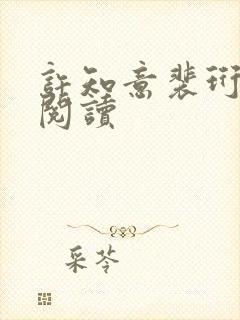 許知意裴珩
閱讀
采苓